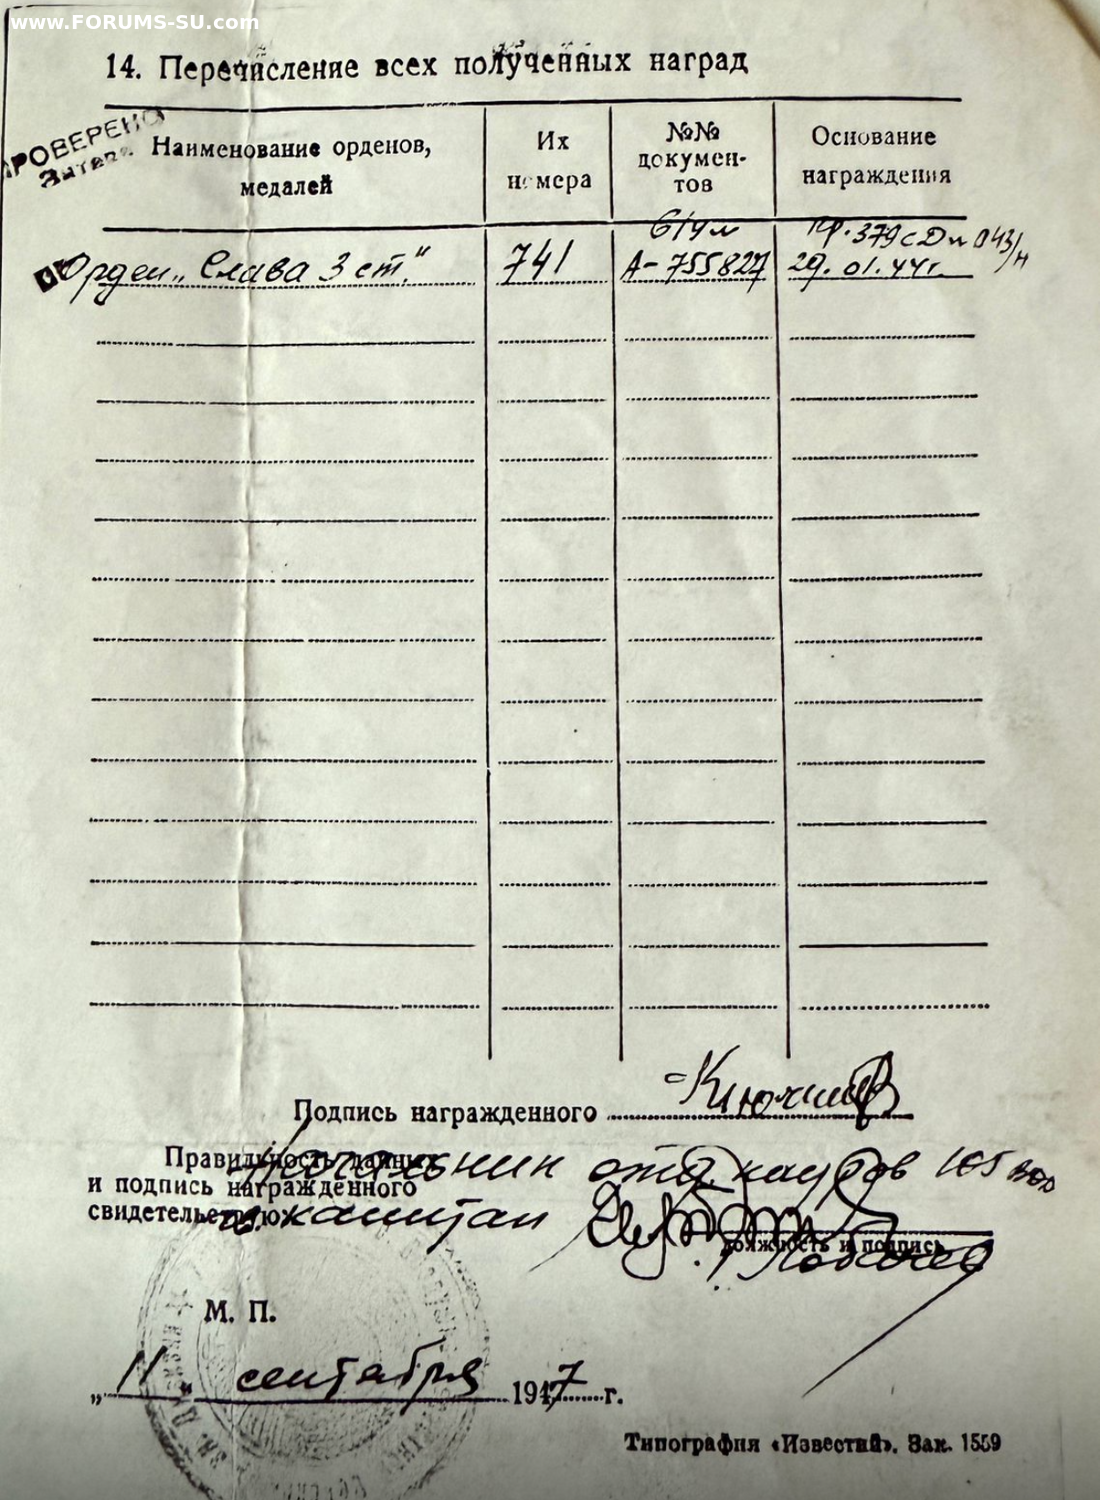 www.FORUMS-SU.com
14. Перечисление всех полученных наград
ПРОВЕРЕНО
Наименование орденов, медалей
Их номера
№№ докумен-тов
Основание награждения
Орден „Слава 3 ст."
741
А-755827
Пр. 379 сд № 043/н
29. 01. 44 г.
Подпись награжденного Ключ
Правильность данных
и подпись награжденного
свидетельствую:
Начальник отд. кадров 105
капитан
должность и подпись
М. П.
„11" сентября 1947 г.
Типография «Известия». Зак. 1559